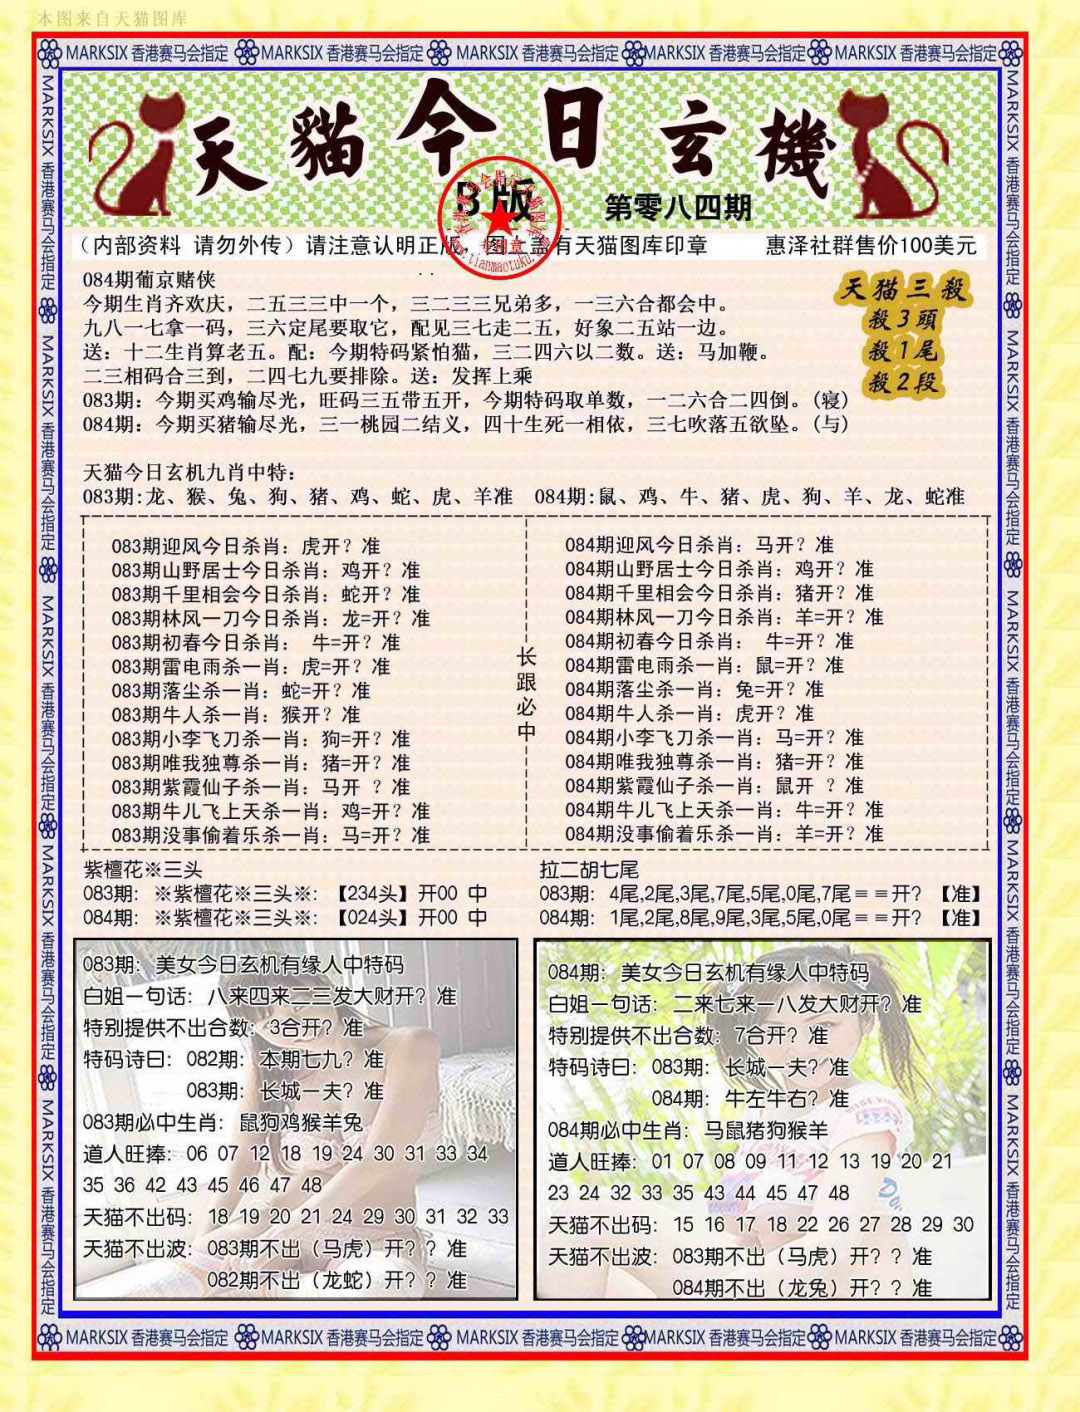 本图来自天猫图库
MARKSIX 香港赛马会指定 MARKSIX 香港赛马会指定 MARKSIX 香港赛马会指定 MARKSIX 香港赛马会指定 MARKSIX 香港赛马会指定
天貓今日玄機
B版 第零八四期
（内部资料 请勿外传）请注意认明正版，图上盖有天猫图库印章 惠泽社群售价100美元
084期葡京赌侠
今期生肖齐欢庆，二五三三中一个，三二三三兄弟多，一三六合都会中。
九八一七拿一码，三六定尾要取它，配见三七走二五，好象二五站一边。
送：十二生肖算老五。配：今期特码紧怕猫，三二四六以二数。送：马加鞭。
二三相码合三到，二四七九要排除。送：发挥上乘
083期：今期买鸡输尽光，旺码三五带五开，今期特码取单数，一二六合二四倒。(寝)
084期：今期买猪输尽光，三一桃园二结义，四十生死一相依，三七吹落五欲坠。(与)
天猫三殺
殺3頭
殺1尾
殺2段
天猫今日玄机九肖中特：
083期:龙、猴、兔、狗、猪、鸡、蛇、虎、羊准 084期:鼠、鸡、牛、猪、虎、狗、羊、龙、蛇准
083期迎风今日杀肖：虎开？准
083期山野居士今日杀肖：鸡开？准
083期千里相会今日杀肖：蛇开？准
083期林风一刀今日杀肖：龙=开？准
083期初春今日杀肖： 牛=开？准
083期雷电雨杀一肖：虎=开？准
083期落尘杀一肖：蛇=开？准
083期牛人杀一肖：猴开？准
083期小李飞刀杀一肖：狗=开？准
083期唯我独尊杀一肖：猪=开？准
083期紫霞仙子杀一肖：马开 ？准
083期牛儿飞上天杀一肖：鸡=开？准
083期没事偷着乐杀一肖：马=开？准
长跟必中
084期迎风今日杀肖：马开？准
084期山野居士今日杀肖：鸡开？准
084期千里相会今日杀肖：猪开？准
084期林风一刀今日杀肖：羊=开？准
084期初春今日杀肖： 牛=开？准
084期雷电雨杀一肖：鼠=开？准
084期落尘杀一肖：兔=开？准
084期牛人杀一肖：虎开？准
084期小李飞刀杀一肖：马=开？准
084期唯我独尊杀一肖：猪=开？准
084期紫霞仙子杀一肖：鼠开 ？准
084期牛儿飞上天杀一肖：牛=开？准
084期没事偷着乐杀一肖：羊=开？准
紫檀花※三头
083期：※紫檀花※三头※：【234头】开00 中
084期：※紫檀花※三头※：【024头】开00 中
拉二胡七尾
083期：4尾,2尾,3尾,7尾,5尾,0尾,7尾＝＝开？【准】
084期：1尾,2尾,8尾,9尾,3尾,5尾,0尾＝＝开？【准】
083期：美女今日玄机有缘人中特码
白姐一句话：八来四来二三发大财开？准
特别提供不出合数：3合开？准
特码诗曰：082期：本期七九？准
083期：长城一夫？准
083期必中生肖：鼠狗鸡猴羊兔
道人旺捧：06 07 12 18 19 24 30 31 33 34
35 36 42 43 45 46 47 48
天猫不出码：18 19 20 21 24 29 30 31 32 33
天猫不出波：083期不出（马虎）开？？准
082期不出（龙蛇）开？？准
084期：美女今日玄机有缘人中特码
白姐一句话：二来七来一八发大财开？准
特别提供不出合数：7合开？准
特码诗曰：083期：长城一夫？准
084期：牛左牛右？准
084期必中生肖：马鼠猪狗猴羊
道人旺捧：01 07 08 09 11 12 13 19 20 21
23 24 32 33 35 43 44 45 47 48
天猫不出码：15 16 17 18 22 26 27 28 29 30
天猫不出波：083期不出（马虎）开？？准
084期不出（龙兔）开？？准
MARKSIX 香港赛马会指定 MARKSIX 香港赛马会指定 MARKSIX 香港赛马会指定 MARKSIX 香港赛马会指定 MARKSIX 香港赛马会指定
MARKSIX 香港赛马会指定 MARKSIX 香港赛马会指定 MARKSIX 香港赛马会指定 MARKSIX 香港赛马会指定 MARKSIX 香港赛马会指定
MARKSIX 香港赛马会指定 MARKSIX 香港赛马会指定 MARKSIX 香港赛马会指定 MARKSIX 香港赛马会指定 MARKSIX 香港赛马会指定